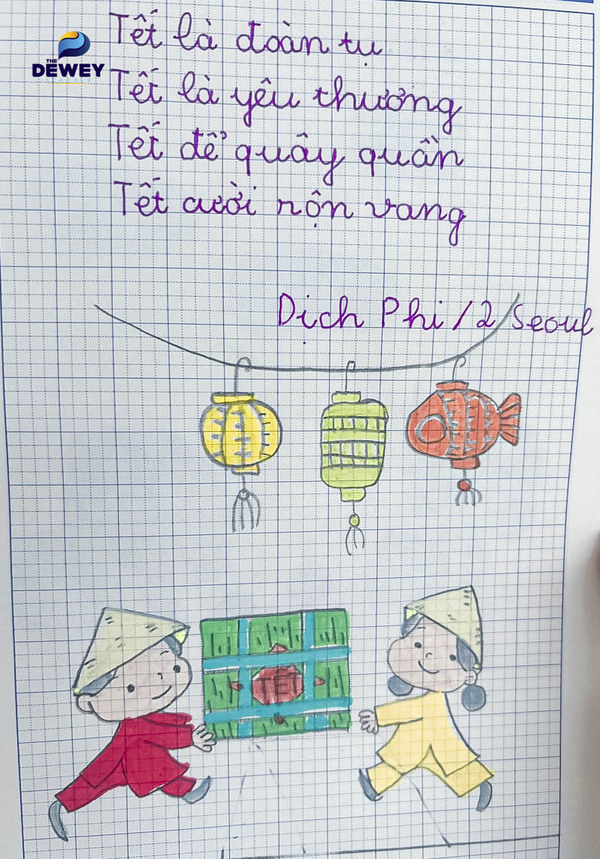 THE
DEWEY
Tết là đoàn tụ
Tết là yêu thương
Tết để quây quần
Tết cười rộn vang
Dịch Phi / 2 / Seoul
TẾT